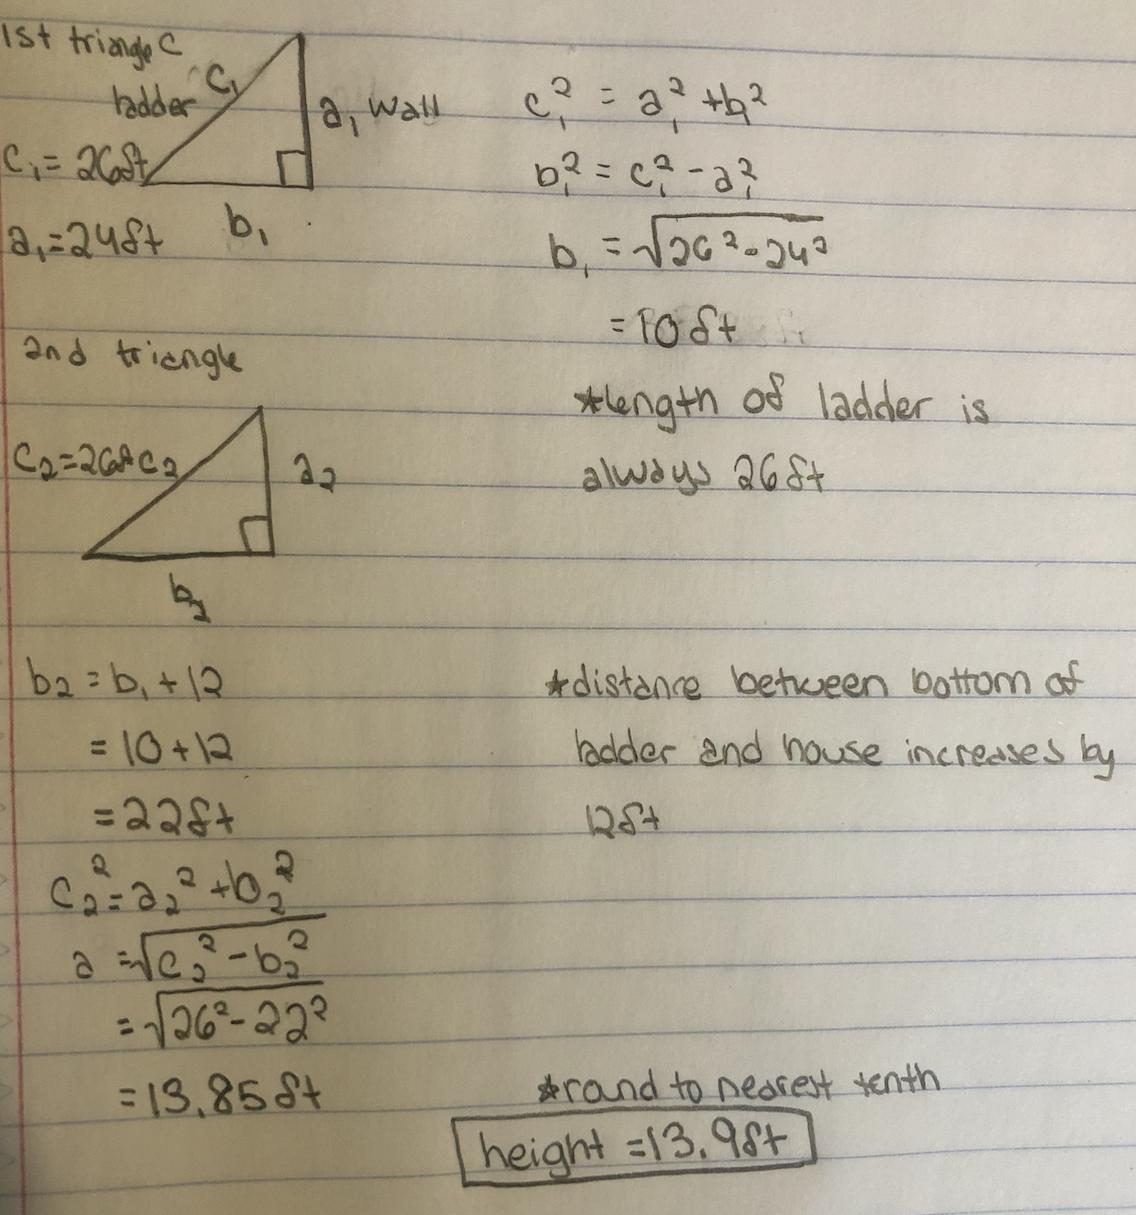 1st triangle C
ladder C₁
a₁ wall
C₁ = 26ft
a₁ = 24ft
b₁
c₁² = a₁² + b₁²
b₁² = c₁² - a₁²
b₁ = √26² - 24²
= 10 ft
2nd triangle
*length of ladder is
always 26 ft
C₂ = 26ft C₂
a₂
b₂
b₂ = b₁ + 12
= 10 + 12
= 22ft
*distance between bottom of
ladder and house increases by
12ft
C₂² = a₂² + b₂²
a = √c₂² - b₂²
= √26² - 22²
= 13.85 ft
*round to nearest tenth
height = 13.9ft